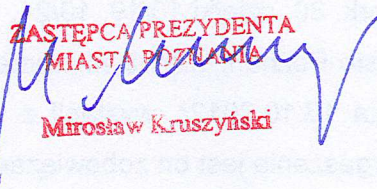 ZASTĘPCA PREZYDENTA
MIASTA POZNANIA
Mirosław Kruszyński